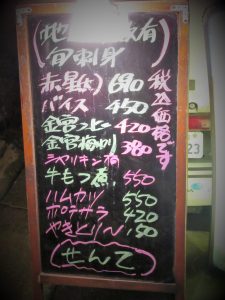 旬刺身
赤星(大) 690
バイス 450
金宮 420
金宮梅割 380
シャリキン梅
牛もつ煮 550
ハムカツ 550
ポテサラ 420
やきとり〜 150
せんて
税込価格です